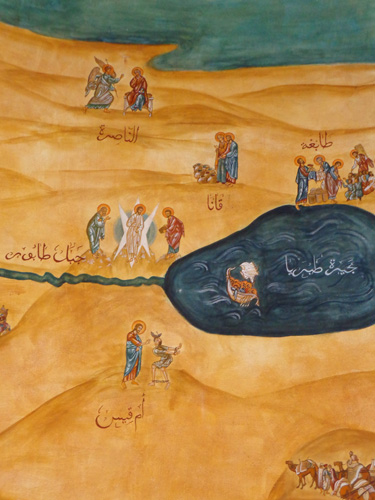 الناصرة
طابغة
قانا
جبل طابور
بحيرة طبريا
أم قيس